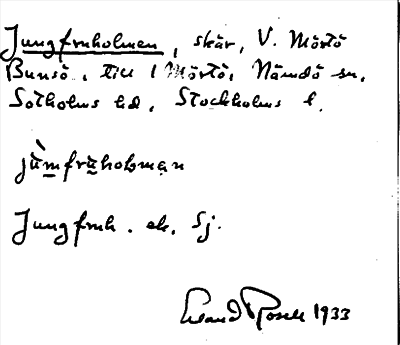 Jungfruholmen, skär, V. Mörtö
Bunsö, till 1 Mörtö, Nämdö sn,
Sotholms hd, Stockholms l.
jùmfruholman
Jungfruh. ek. Sj.
1933